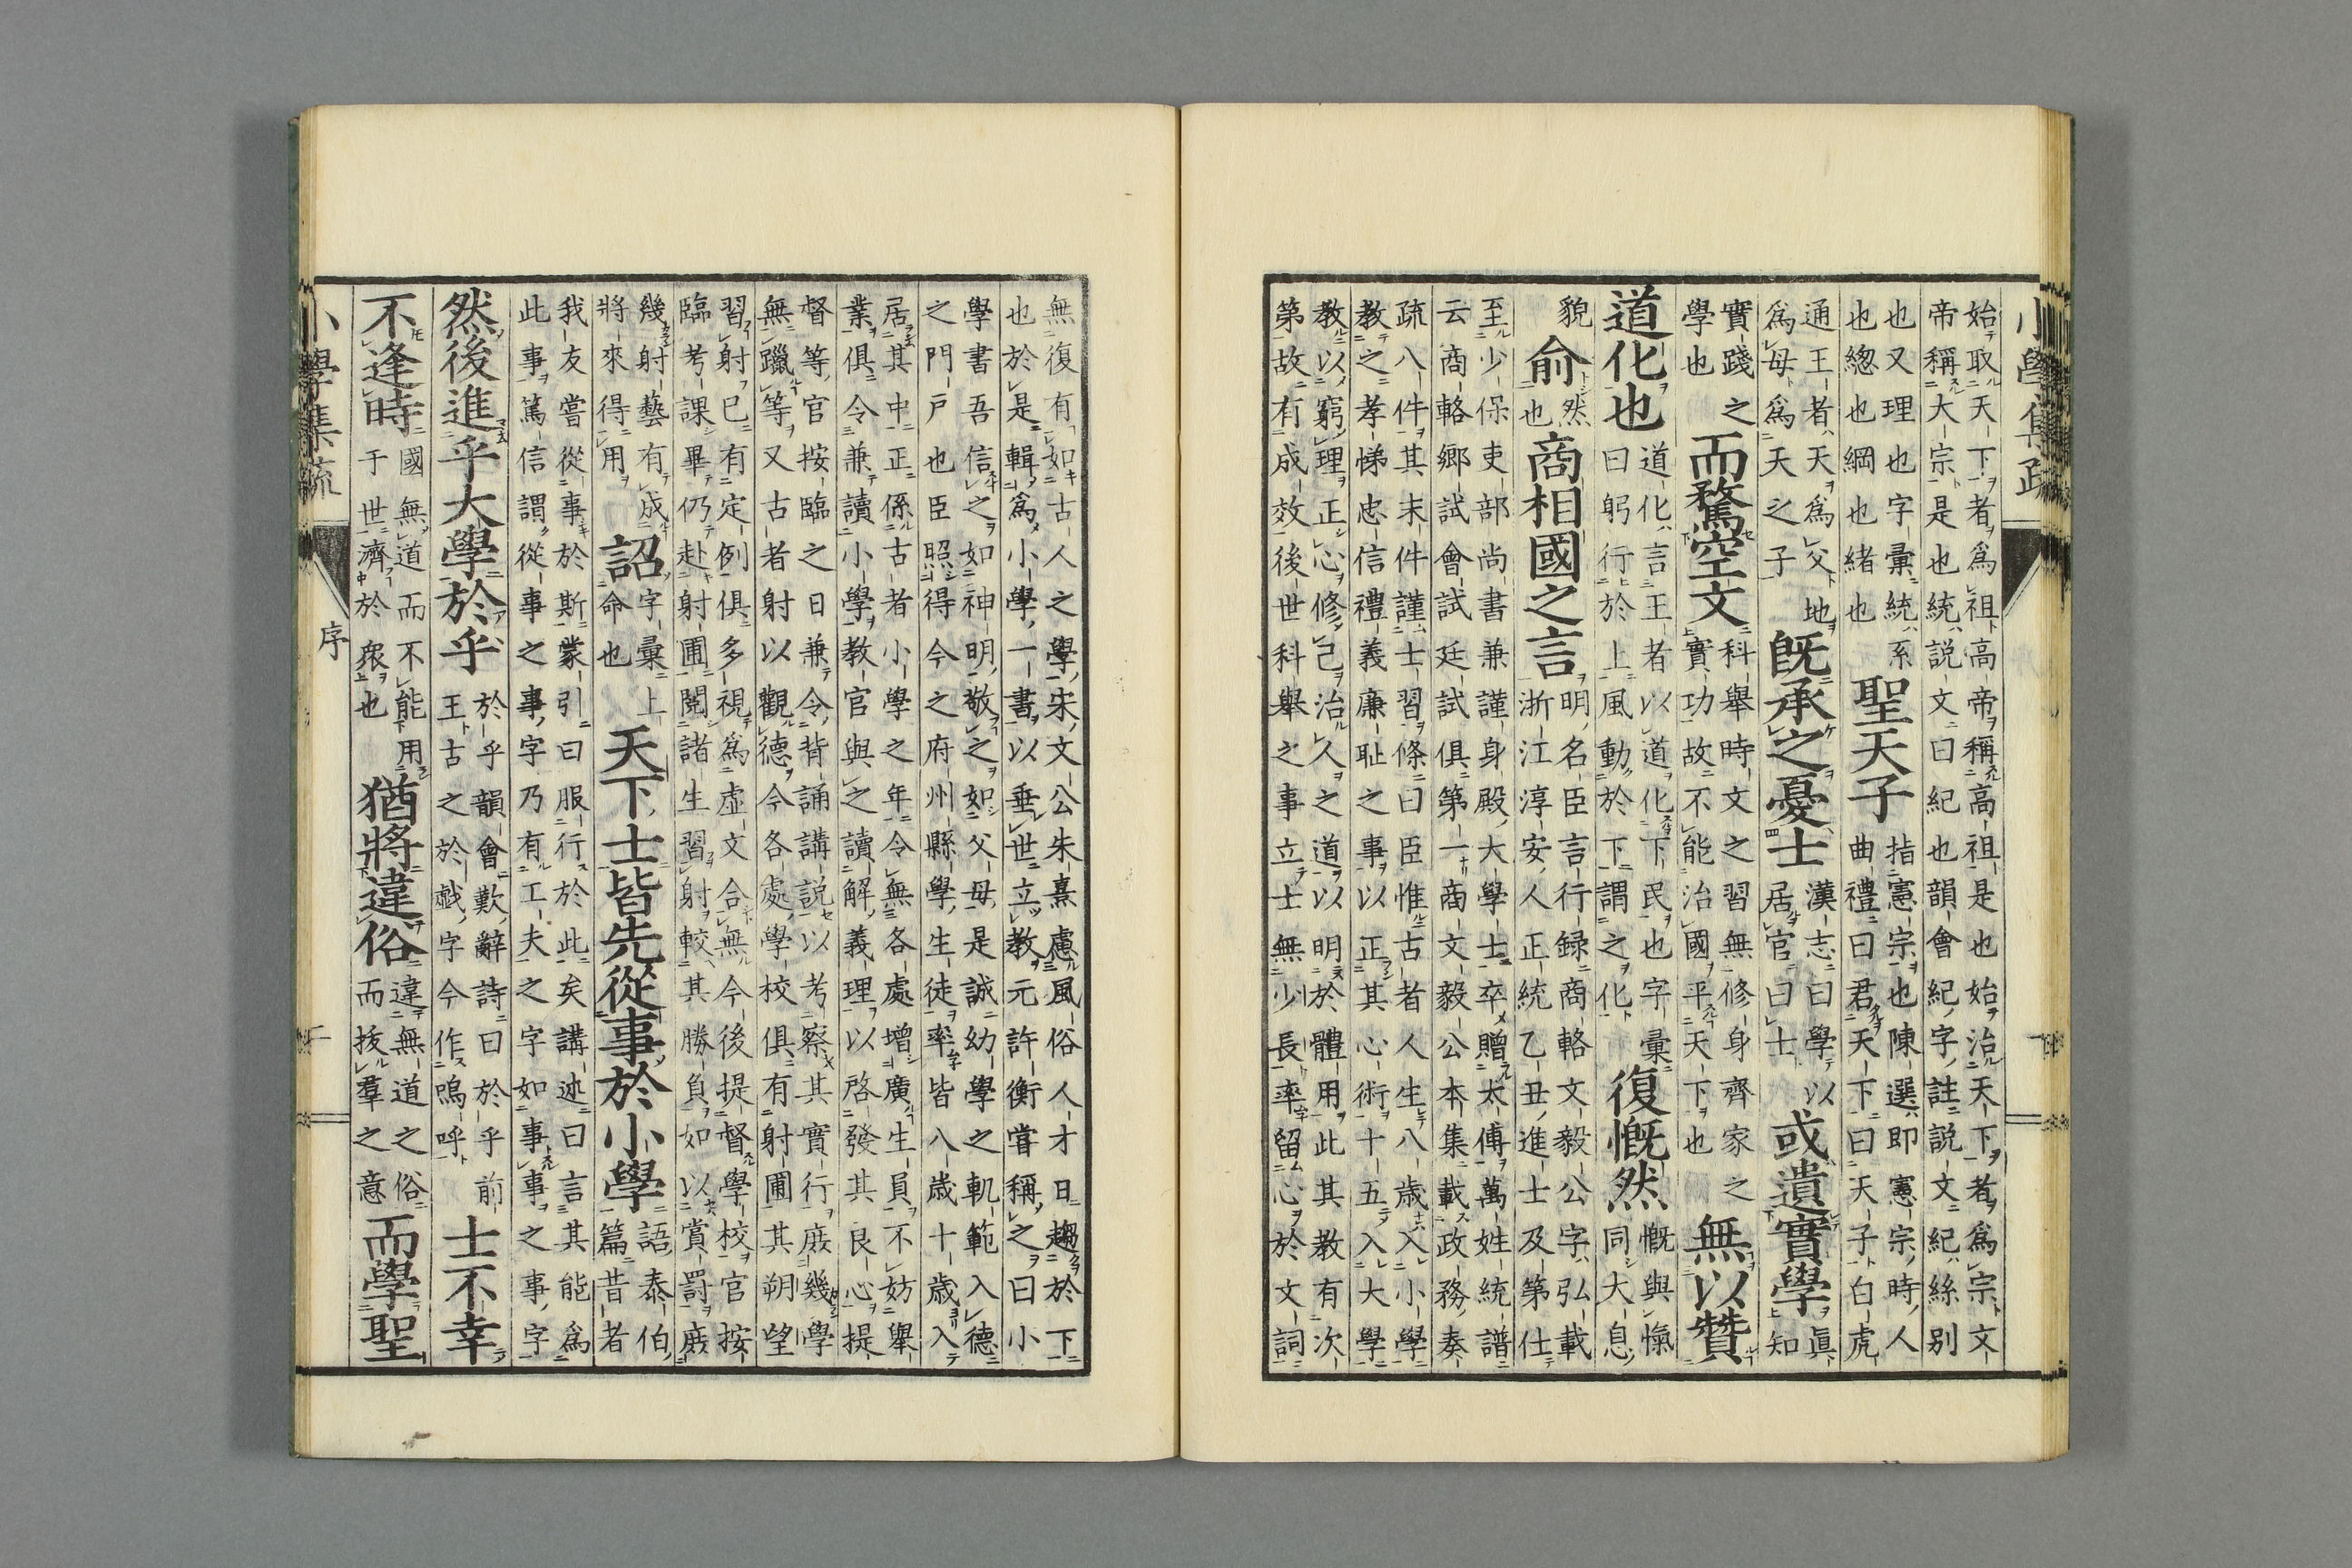 小學集疏
始取天下者爲祖高帝稱高祖是也始治天下者爲宗文
帝稱大宗是也統說文曰紀也韻會紀字註說文紀絲别
也又理也字彙統系
也緫也綱也緒也
聖天子
指憲宗也陳選即憲宗時人
曲禮曰君天下曰天子白虎
通王者天爲父地
爲母爲天之子
旣承之憂士
漢志曰學以
居官曰士
或遺實學
眞知
實踐之
學也
而騖空文
科舉時文之習無修身齊家之
實功故不能治國平天下也
無以贊
道化也
道化言王者以道化下民也字彙
曰躬行於上風動於下謂之化
復慨然
慨與愾
同大息
貌
俞
然
也
商相國之言
明名臣言行録商輅文毅公字弘載
浙江淳安人正統乙丑進士及第仕
至少保吏部尚書兼謹身殿大學士卒贈太傅萬姓統譜
云商輅鄉試會試廷試俱第一商文毅公本集載政務奏
疏八件其末件謹士習條曰臣惟古者人生八歲入小學
教之孝悌忠信禮義廉耻之事以正其心術十五入大學
教以窮理正心修己治人之道以明於體用此其教有次
第故有成效後世科舉之事立士無少長率留心於文詞
無復有如古人之學朱文公朱熹慮風俗人才日趨於下
也於是輯爲小學一書以垂世立教元許衡嘗稱之曰小
學書吾信之如神明敬之如父母是誠幼學之軌範入德
之門戶也臣照得今之府州縣學生徒率皆八歲十歲入
居其中正係古者小學之年令無各處增廣生員不妨舉
業俱令兼讀小學教官與之讀解義理以啓發其良心提
督等官按臨之日兼令背誦講說以考察其實行庶幾學
無躐等又古者射以觀德今各處學校俱有射圃其朔望
習射已有定例俱多視爲虛文合無今後提督學校官按
臨考課畢仍赴射圃閱諸生習射較其勝負如以賞罰庶
幾射藝有成
將來得用
詔
字彙上
命也
天下士皆先從事於小學
語泰伯
篇昔者
我友嘗從事於斯蒙引曰服行於此矣講述曰言其能爲
此事篤信謂從事之事字乃有工夫之字如事事之事字
然後進乎大學於乎
於乎韻會歎辭詩曰於乎前
王古之於戲字今作嗚呼
士不幸
不逢時
國無道而不能用
于世濟於衆也
猶將違俗
違無道之俗
而拔羣之意
而學聖
小學集疏
序